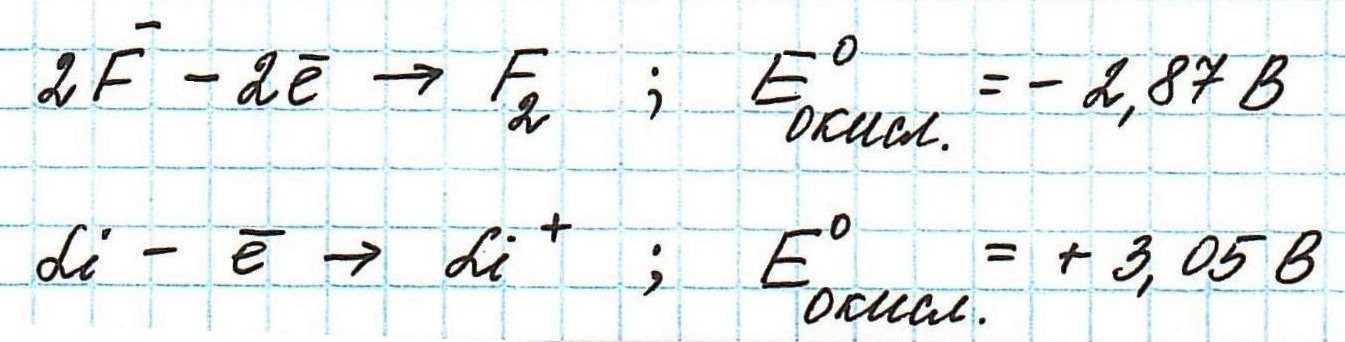 2F⁻ − 2ē → F₂ ; E⁰окисл. = − 2,87 В
Li − ē → Li⁺ ; E⁰окисл. = + 3,05 В